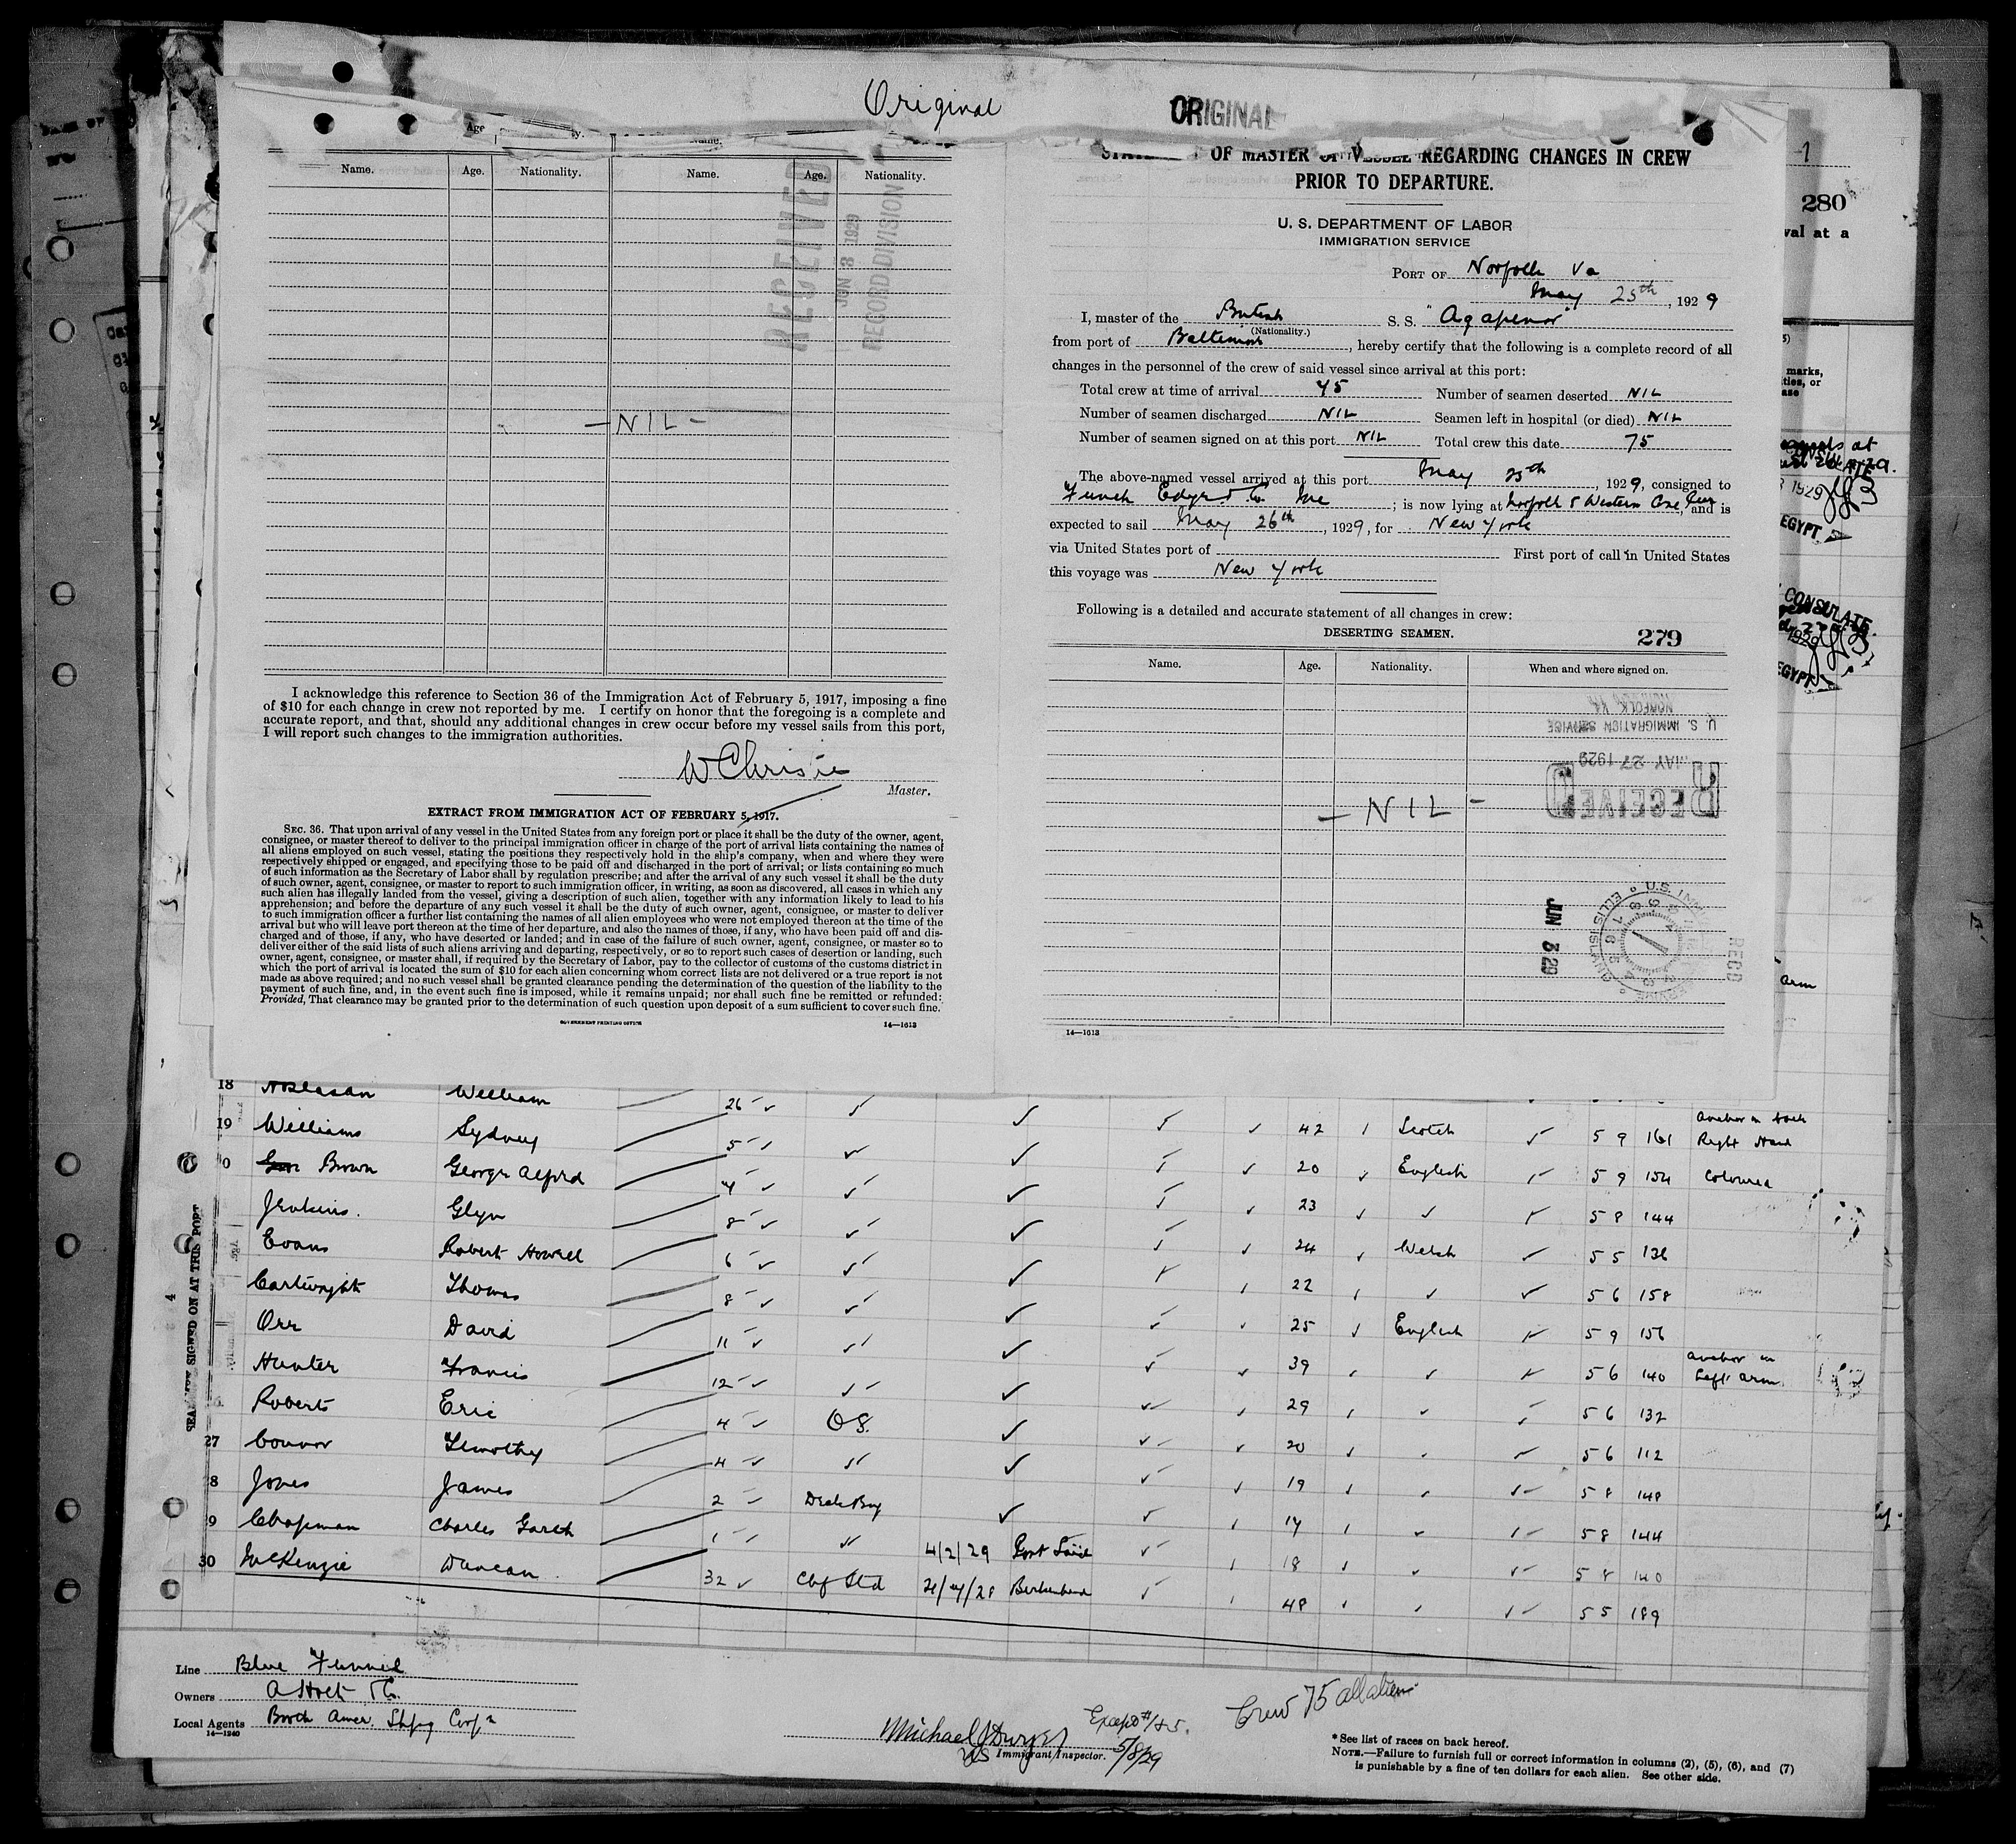 Original
ORIGINAL
Age
Name.
Name. Age. Nationality. Name. Age. Nationality.
RECEIVED
JUN 3 1929
RECORD DIVISION
—NIL—
I acknowledge this reference to Section 36 of the Immigration Act of February 5, 1917, imposing a fine
of $10 for each change in crew not reported by me. I certify on honor that the foregoing is a complete and
accurate report, and that, should any additional changes in crew occur before my vessel sails from this port,
I will report such changes to the immigration authorities.
W Christie
Master.
EXTRACT FROM IMMIGRATION ACT OF FEBRUARY 5, 1917.
SEC. 36. That upon arrival of any vessel in the United States from any foreign port or place it shall be the duty of the owner, agent,
consignee, or master thereof to deliver to the principal immigration officer in charge of the port of arrival lists containing the names of
all aliens employed on such vessel, stating the positions they respectively hold in the ship's company, when and where they were
respectively shipped or engaged, and specifying those to be paid off and discharged in the port of arrival; or lists containing so much
of such information as the Secretary of Labor shall by regulation prescribe; and after the arrival of any such vessel it shall be the duty
of such owner, agent, consignee, or master to report to such immigration officer, in writing, as soon as discovered, all cases in which any
such alien has illegally landed from the vessel, giving a description of such alien, together with any information likely to lead to his
apprehension; and before the departure of any such vessel it shall be the duty of such owner, agent, consignee, or master to deliver
to such immigration officer a further list containing the names of all alien employees who were not employed thereon at the time of the
arrival but who will leave port thereon at the time of her departure, and also the names of those, if any, who have been paid off and dis-
charged and of those, if any, who have deserted or landed; and in case of the failure of such owner, agent, consignee, or master so to
deliver either of the said lists of such aliens arriving and departing, respectively, or so to report such cases of desertion or landing, such
owner, agent, consignee, or master shall, if required by the Secretary of Labor, pay to the collector of customs of the customs district in
which the port of arrival is located the sum of $10 for each alien concerning whom correct lists are not delivered or a true report is not
made as above required; and no such vessel shall be granted clearance pending the determination of the question of the liability to the
payment of such fine, and, in the event such fine is imposed, while it remains unpaid; nor shall such fine be remitted or refunded:
Provided, That clearance may be granted prior to the determination of such question upon deposit of a sum sufficient to cover such fine.
GOVERNMENT PRINTING OFFICE 14—1613
OF MASTER OF VESSEL REGARDING CHANGES IN CREW
PRIOR TO DEPARTURE.
U. S. DEPARTMENT OF LABOR
IMMIGRATION SERVICE
PORT OF Norfolk Va
May 25th, 1929
I, master of the British S. S. "Agapenor"
(Nationality.)
from port of Baltimore, hereby certify that the following is a complete record of all
changes in the personnel of the crew of said vessel since arrival at this port:
Total crew at time of arrival 75 Number of seamen deserted NIL
Number of seamen discharged NIL Seamen left in hospital (or died) NIL
Number of seamen signed on at this port NIL Total crew this date 75
The above-named vessel arrived at this port May 25th, 1929, consigned to
Funch Edye & Co. Inc; is now lying at Norfolk & Western Ore Pier, and is
expected to sail May 26th, 1929, for New York
via United States port of First port of call in United States
this voyage was New York
Following is a detailed and accurate statement of all changes in crew:
DESERTING SEAMEN. 279
Name. Age. Nationality. When and where signed on.
NORFOLK, VA
U. S. IMMIGRATION SERVICE
MAY 27 1929
RECEIVED
— NIL —
JUN 3 29
REC'D
14—1613
280
val at a
marks,
ties, or
EGYPT
CONSULATE
EGYPT
arm
SIGNED ON AT THIS PORT
18 William 26
19 Williams Sydney 5 42 Scotch 5 9 161 Anchor on back Right Hand
0 Brown George Alfred 4 20 English 5 9 154 Coloured
Jenkins Glyn 8 23 5 8 144
Evans Robert Howell 6 24 Welsh 5 5 136
Cartwright Thomas 8 22 5 6 158
Orr David 11 25 English 5 9 156
Hunter Francis 12 39 5 6 140 Anchor on Left arm
Roberts Eric 4 O S. 29 5 6 132
27 Connor Timothy 4 20 5 6 112
8 Jones James 2 Deck Boy 19 5 8 148
9 Chapman Charles Gareth 1 4/2/29 Port Said 17 5 8 144
30 McKenzie Duncan 32 Chf Std Birkenhead 18 5 8 140
48 5 5 189
Line Blue Funnel
Owners A Holt & Co.
Local Agents Booth Amer. Shpg Corpn
14—1240
Michael J Dwyer
US Immigrant Inspector.
5/8/29
Crew 75 all aliens
*See list of races on back hereof.
NOTE.—Failure to furnish full or correct information in columns (2), (5), (6), and (7)
is punishable by a fine of ten dollars for each alien. See other side.